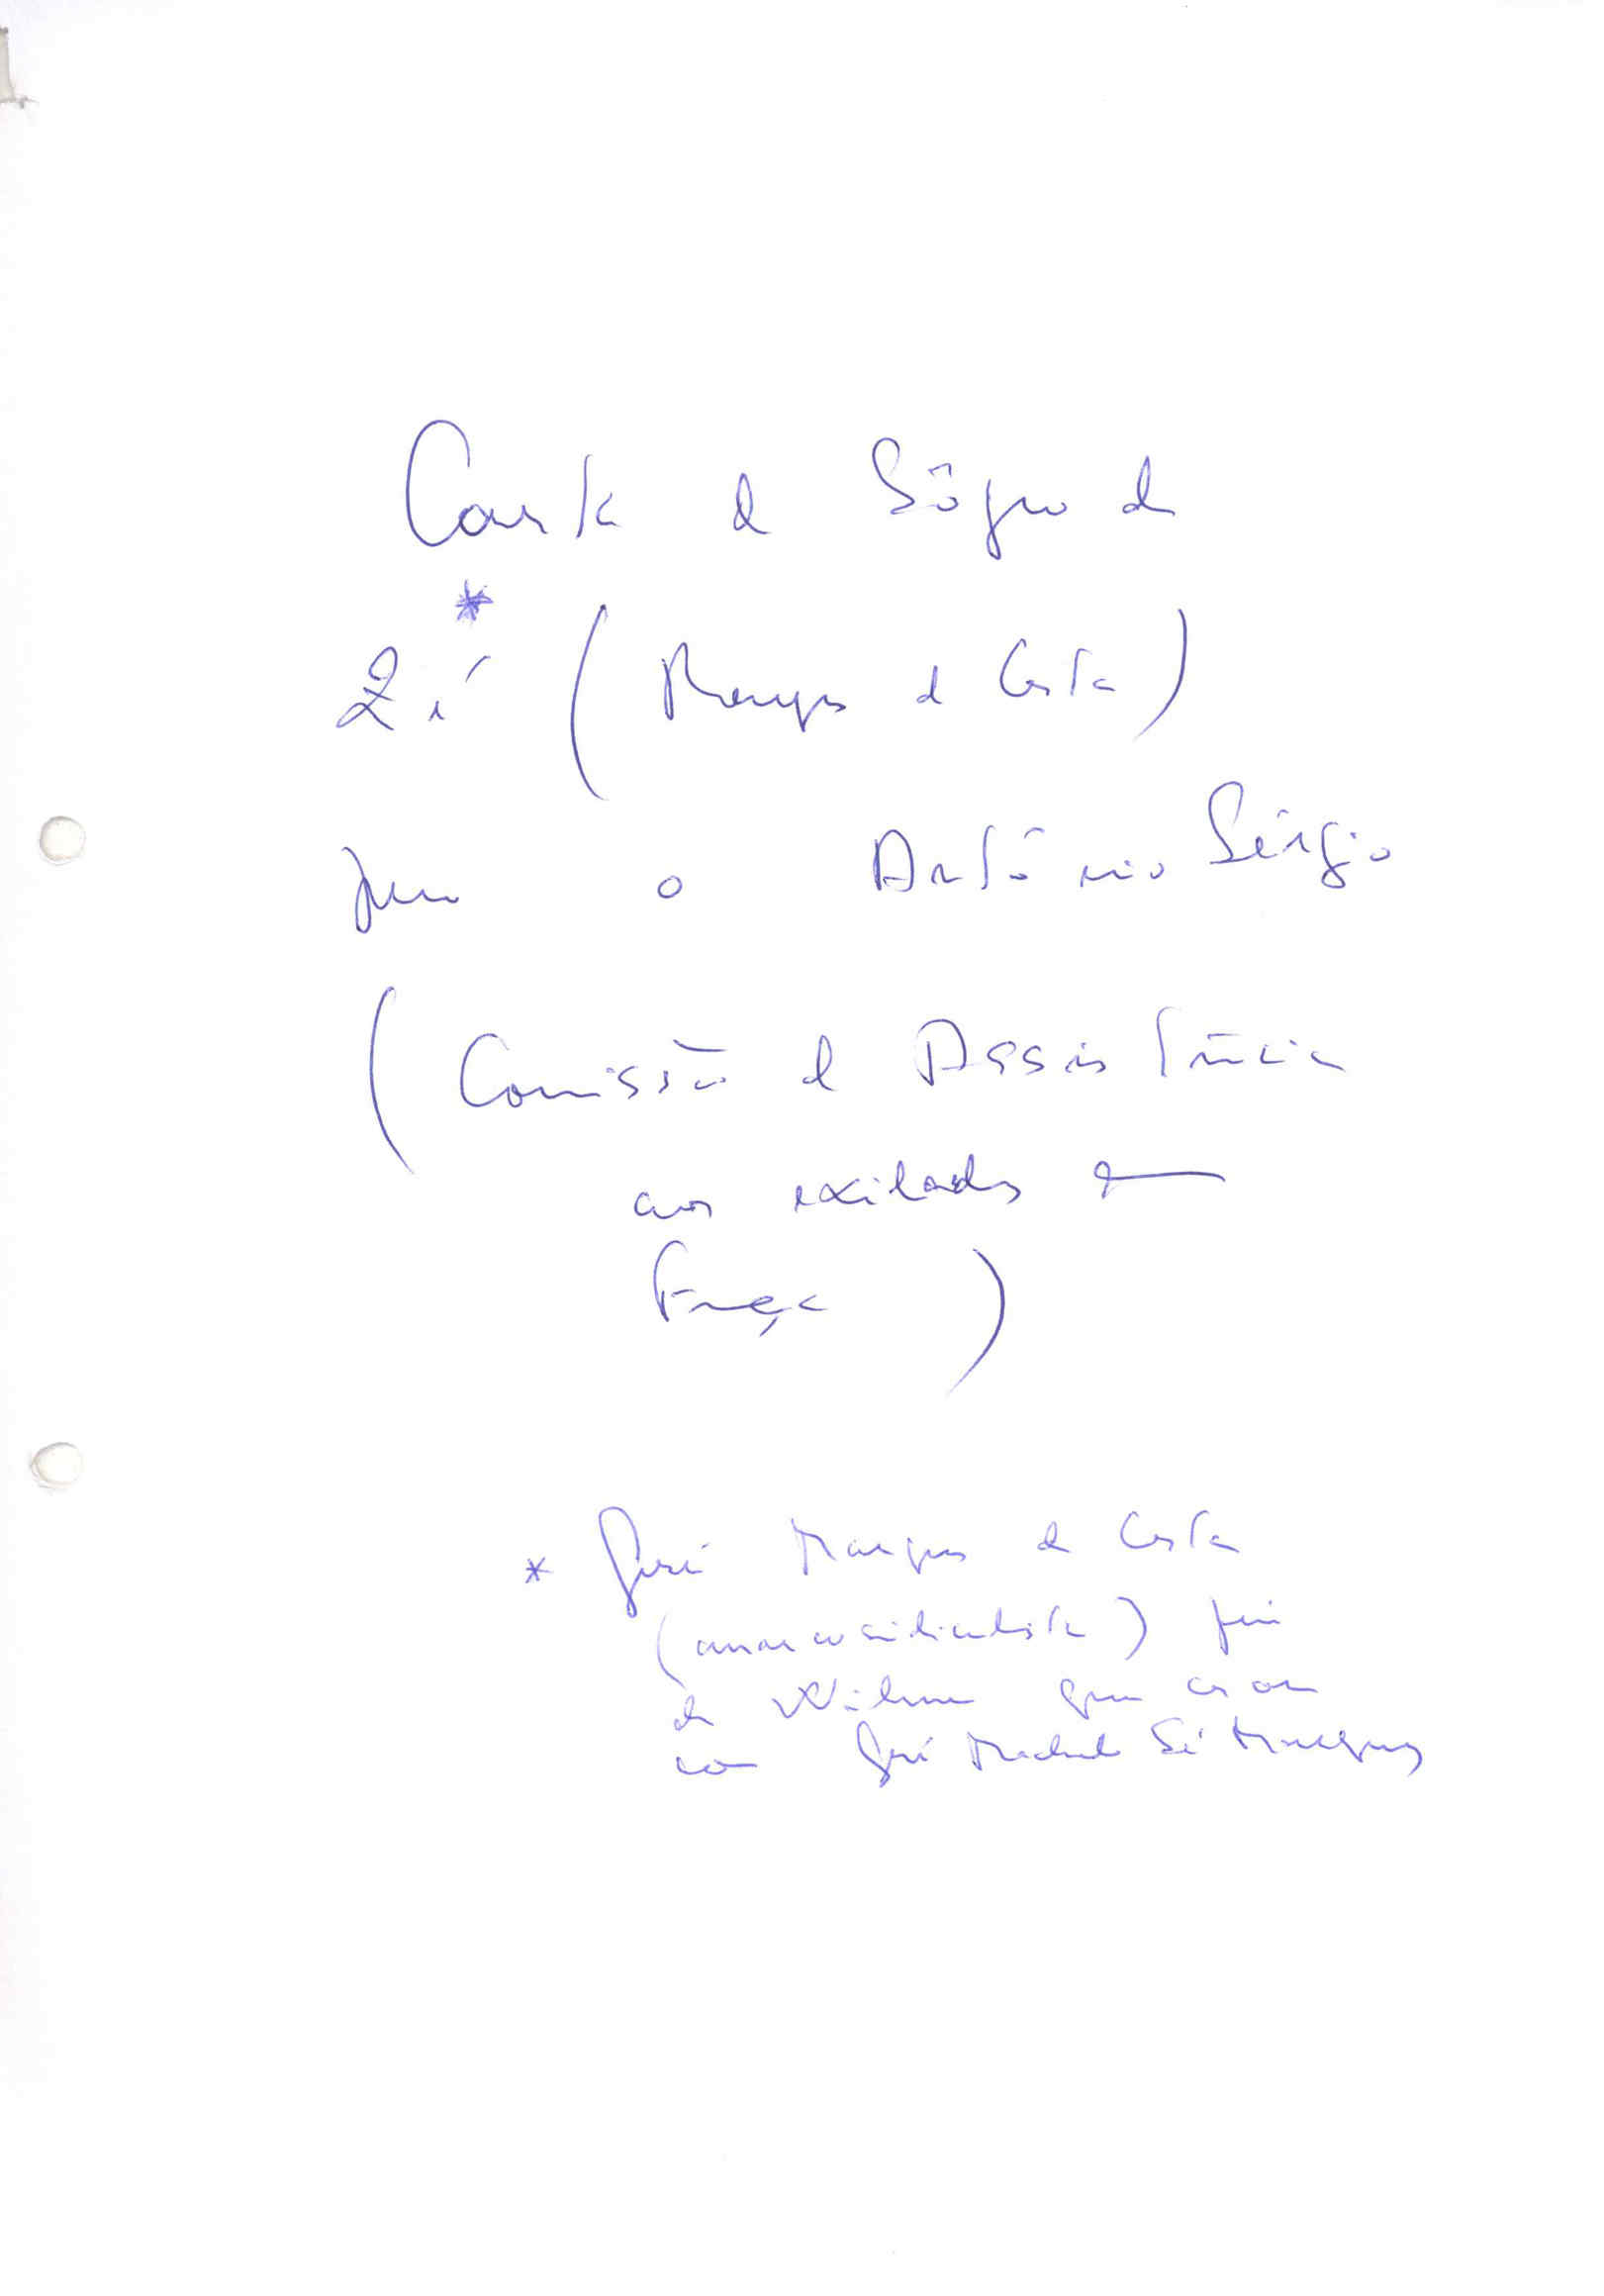 Carta do Sôgro do
*
Zé (Marques da Costa)
para o António Sérgio
(Comissão de Assistência
aos exilados em
França)
* José Marques da Costa
(anarcosindicalista) pai
da Wilma que casou
com José Machado Sá Marques